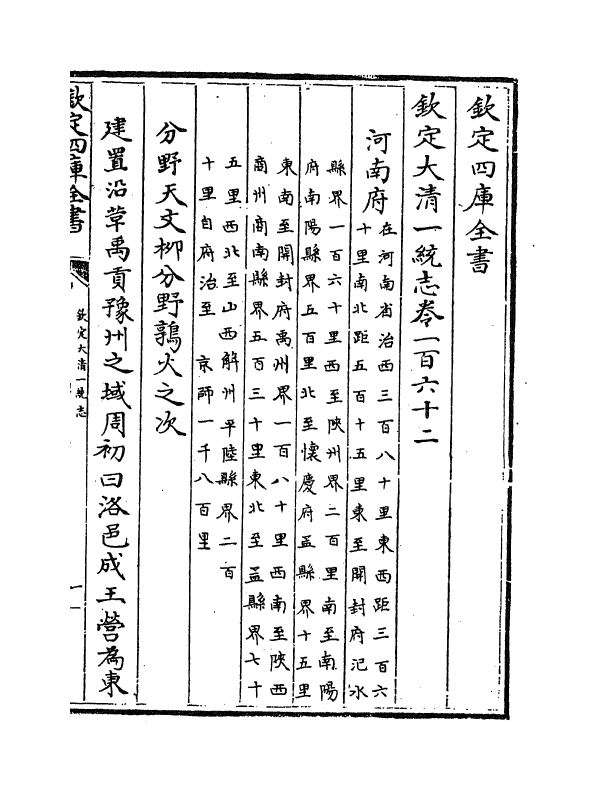 欽定四庫全書
欽定大清一統志卷一百六十二
河南府
在河南省治西三百八十里東西距三百六
十里南北距五百十五里東至開封府汜水
縣界一百六十里西至陝州界二百里南至南陽
府南陽縣界五百里北至懷慶府孟縣界十五里
東南至開封府禹州界一百八十里西南至陝西
商州商南縣界五百三十里東北至孟縣界七十
五里西北至山西解州平陸縣界二百
十里自府治至 京師一千八百里
分野天文柳分野鶉火之次
建置沿革禹貢豫州之域周初曰洛邑成王營為東
欽定四庫全書
欽定大清一統志
一